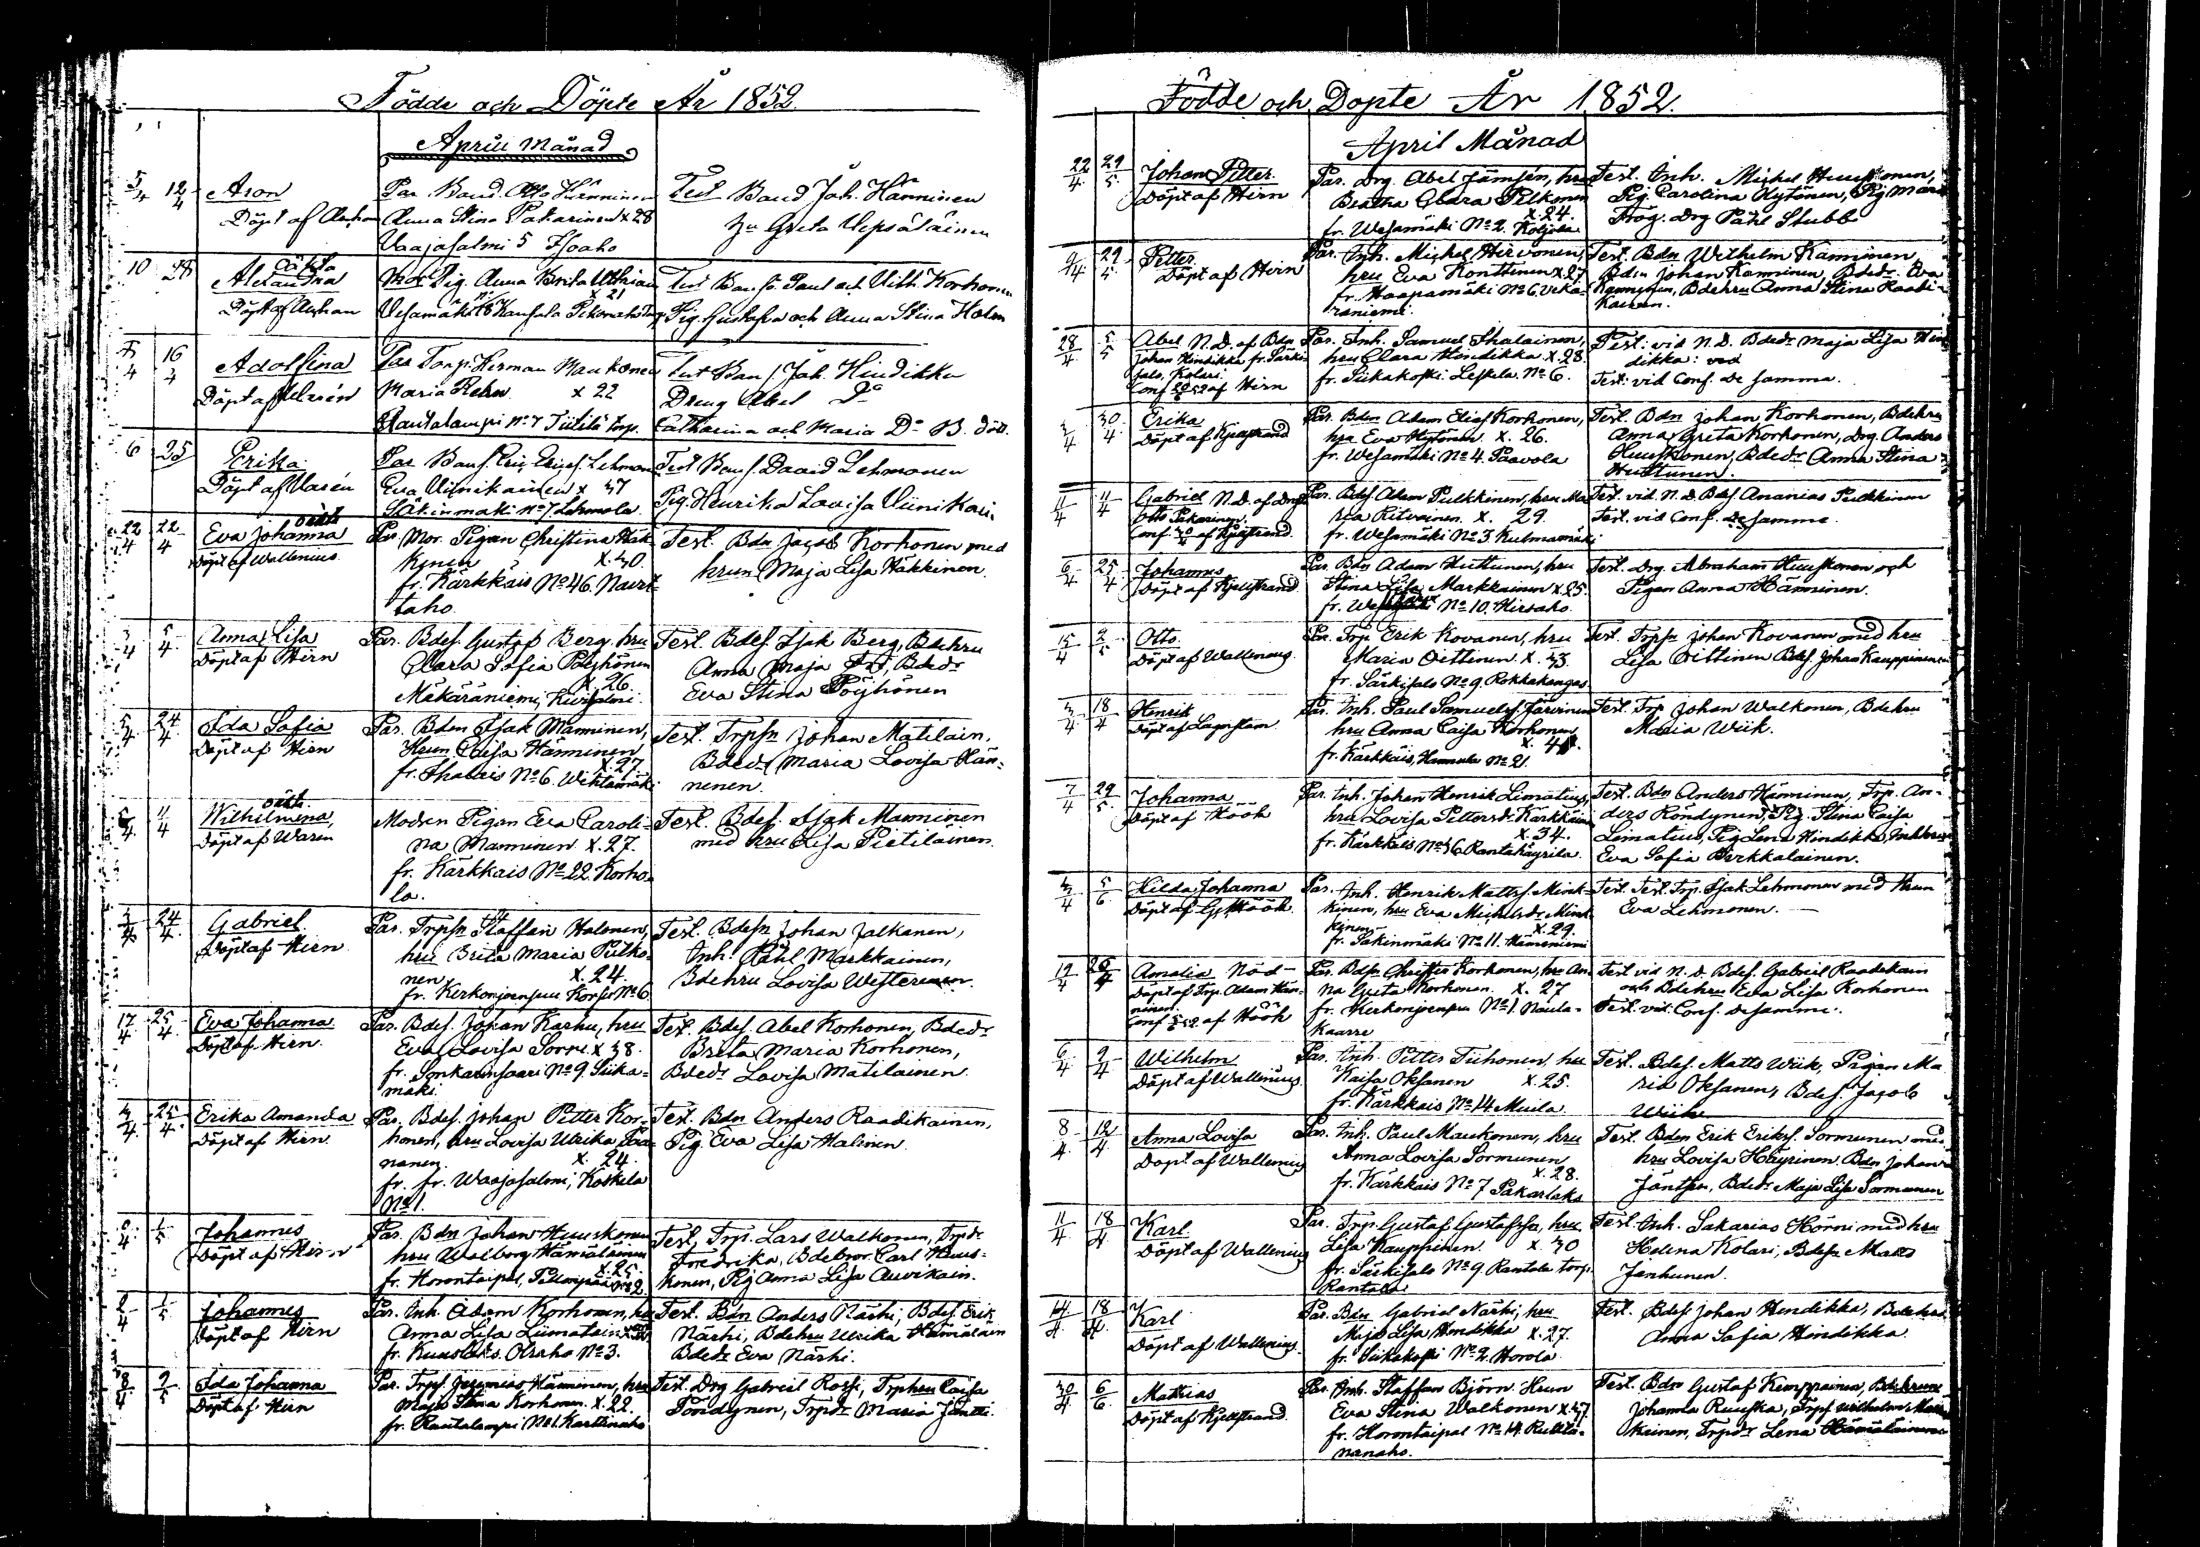 Födde och Döpte År 1852.
April Månad
5/4 12/4 Aron
Döpt af
Par Band. Otto Hänninen
Anna Stina Pakarinen x 28
Vaajasalmi 5
Test Band Joh. Hänninen
Greta Vepsäläinen
10 28 oäkta
Alexandra
Döpt af
Mor Pig. Anna Brita
x 21
Vesamäki 18 Kansala
Paul och Vilh. Korhonen
Pig. Gustafva och Anna Stina
4 16/4 Adolfina
Döpt af Warén
Par Torp. Herman Maukonen
Maria x 22
Rautalampi No 7 torp.
Test Joh. Hindikka
Dreng Abel Do
Catharina och Maria Do B. dött.
6 25 Erika
Döpt af Warén
Par Lehmonen
Eva Viinikainen x 47
Säkinmäki No 7 Lehmola.
Test David Lehmonen
Pig. Henrika Lovisa Viinikai.
22/4 22/4 oäkt
Eva Johanna
Döpt af Wallenius
Par Mor. Pigan Christina Häk-
kinen x. 40
fr. Kärkkäis No 46.
taho.
Test. Bdn Jacob Korhonen med
hrun Maja Lisa Häkkinen.
3/4 5/4 Anna Lisa
Döpt af Hirn
Par. Bdes. Gustaf Berg, hru
Clara Sofia Pöyhönen
x. 26
Mäkäräniemi, Kivisalmi.
Test. Bdes. Isak Berg, Bdehru
Anna Maja Bdedr
Eva Stina Pöyhönen
5/4 24/4 Ida Sofia
Döpt af Hirn
Par. Bden Isak Manninen,
Hrun Caisa Hänninen
x. 27
fr. No 6.
Test. Trpsn Johan Matilain.
Bdedr Maria Lovisa Hän-
nenen.
5/4 11/4 oäkt.
Wilhelmina
Döpt af Waren
Modren Pigan Eva Caroli-
na Manninen x. 27.
fr. Kärkkäis No 22. Korho-
la.
Test. Bdes. Isak Manninen
med hru Lisa Pietiläinen.
24/4 Gabriel
Döpt af Hirn
Par. Trpsn Staffan Halonen,
hru Brita Maria Pulko-
nen x. 24
fr. Kerkonjoensuu Korsu No 6
Test. Bdesn Johan Jalkanen,
Inh. Påhl Markkainen,
Bdehru Lovisa Westerinen.
17/4 25/4 Eva Johanna
Döpt af Hirn.
Par. Bdes. Johan Karhu, hru
Eva Lovisa Sorri x 38.
fr. Sonkarinsaari No 9. Siika-
mäki.
Test. Bdes. Abel Korhonen, Bdedr
Brita Maria Korhonen,
Bdedr Lovisa Matilainen.
25/4 Erika Amanda
Döpt af Hirn
Par. Bdes. Johan Petter Kor-
honen, hru Lovisa Ulrika
nanen. x. 24.
fr. fr. Waajasalmi, Koskela
No 1.
Test. Bdn Anders Raadikainen,
Pig. Eva Lisa Halonen.
1/5 Johannes
Döpt af Hirn
Par. Bdn Johan Huuskonen
hru Walborg Hämäläinen
x. 25.
fr. Horontaipal,
Test, Trp. Lars Walkonen, Trpdr
Fredrika, Bdebror Carl Huus-
konen, Pig Anna Lisa Auvikain.
1/5 Johannes
Döpt af Hirn
Par. Inh. Adam Korhonen, hru
Anna Lisa Liimatain
fr. No 3.
Test. Bdn Anders Närhi, Bdes. Erik
Närhi, Bdehru Ulrika Hämäläin
Bdedr Eva Närhi.
8/4 9/5 Ida Johanna
Döpt af Hirn
Par. Trps. Jeremias Hänninen, hru
Maja Stina Korhonen. x. 22.
fr. Rautalampi No 1. Karttunaho
Test. Drg Gabriel Rossi, Trphru Caisa
Pöndynen, Trpdr Maria Jäntti.
Födde och Döpte År 1852.
April Månad
22/4 29/5 Johan Petter.
Döpt af Hirn
Par. Drg. Abel Jämsén, hru
Beatha Clara Pelkonen
x. 24.
fr. Wesamäki No 2. Koljola
Test. Inh. Michel Huuskonen,
Pig. Carolina Kytönen, Pig Maria
Drg Påhl Stubb
9/4 29/5 Petter.
Döpt af Hirn
Par. Inh. Michel Hirvonen,
hru Eva Konttinen x. 27
fr. Haapamäki No 6.
raniemi.
Test. Bdn Wilhelm Känninen
Bdsn Johan Känninen, Bdedr. Eva
Bdehru Anna Stina Raadi-
kainen.
28/4 5/5 Abel N.D. af Bdn
Johan Hindikka fr. Särki-
salo, Kolari.
Conf. af Hirn
Par. Inh. Samuel Ihalainen,
hru Clara Hindikka x. 28.
fr. Siikakoski Leskela. No 6.
Test. vid N.D. Bdedr Maja Lisa Hin-
dikka: ved
Test. vid Conf. de samma.
30/4 Erika
Döpt af Kjellstrand
Par. Bdsn Adam Elias Korhonen,
hru Eva Kytönen. x. 26.
fr. Wesamäki No 4. Paavola
Test. Bdn Johan Korhonen, Bdehru
Anna Greta Korhonen, Drg. Anders
Huuskonen, Bdedr Anna Stina
Huttunen.
11/4 11/4 Gabriel N.D. af Drg
Otto Pakarinen.
Conf. af Kjellstrand
Par. Bdes Adam Pulkkinen, hru Ma-
ria Ritvainen. x. 29.
fr. Wesamäki No 3
Test. vid N.D. Bdes Ananias Pulkkinen
Test. vid Conf. de samme.
6/4 25/4 Johannes
Döpt af Kjellstrand
Par. Bdn Adam Huttunen, hru
Stina Lisa Markkainen x 25.
fr. No 10. Hirsaho.
Test. Drg. Abraham Huuskonen och
Pigan Anna Hänninen.
15/4 2/5 Otto.
Döpt af Wallenius.
Par. Trp Erik Kovanen, hru
Maria Oittinen. x. 43.
fr. Särkisalo No 9. Rokkakangas
Test. Trpsn Johan Kovanen med hru
Lisa Oittinen Bdes. Johan Kauppinen
18/4 Henrik
Döpt af Lagerstam
Par. Inh. Paul Samuels. Järvinen
hru Anna Caisa Korhonen
x. 41.
fr. Kärkkäis, Hannula No 21
Test. Trp Johan Walkonen, Bdehru
Maria Wiik.
7/4 29/5 Johanna
Döpt af Höök
Par. Inh. Johan Henrik Limatius,
hru Lovisa Pettersdr. Kärkkäin
x. 34.
fr. Kärkkäis No 46 Rantakäyrilä.
Test. Bdn Anders Hänninen, Trp. An-
ders Röndynen, Pig. Stina Caisa
Limatius, Pig Lena Hindikka,
Eva Sofia Pirkkalainen.
5/6 Hilda Johanna
Döpt af Höök
Par. Inh. Henrik Matts. Mink-
kinen, hru Eva Michelsdr. Mink-
kinen x. 29.
fr. Säkinmäki No 11. Hämeniemi
Test. Test. Trp. Isak Lehmonen med Hrun
Eva Lehmonen.
19/4 Amalia Nöd-
Döpt af Trp. Adam Hän-
ninen.
Conf. af Höök
Par. Bdsn Christer Korhonen, hru An-
na Greta Korhonen. x. 27
fr. Kerkonjoensuu No 1. Naula-
kaarre
Test vid n. d. Bdes. Gabriel Raadekain
och Bdehru Eva Lisa Korhonen
Test. vid Conf. desamme.
6/4 9/4 Wilhelm
Döpt af Wallenius.
Par. Inh. Petter Tiihonen, hru
Kaisa Oksanen x. 25.
fr. Kärkkäis No 14 Muila.
Test. Bdes. Matts Wiik, Pigan Ma-
ria Oksanen, Bdes. Jacob
Wiik.
8/4 12/4 Anna Lovisa
Döpt af Wallenius
Par. Inh. Paul Maukonen, hru
Anna Lovisa Sormunen
x. 28.
fr. Kärkkäis No 7 Pakarlaks
Test. Bden Erik Eriks. Sormunen med
hru Lovisa Häyrinen Bdsn Johan
Bdedr Maja Lisa Sormunen
11/4 18/4 Karl.
Döpt af Wallenius
Par. Trp. Gustaf Gustafsson, hru
Lisa Kauppinen. x. 30
fr. Särkisalo No 9 Rantala torp.
Rantala
Test. Inh. Sakarias Hörni med hru
Helena Kolari, Bdesn Matts
Janhunen.
14/4 18/4 Karl
Döpt af Wallenius.
Par. Bdn Gabriel Närhi, hru
Maja Lisa Hindikka x. 27.
fr. Siikakoski No 2. Horola
Test. Bdes Johan Hindikka, Bdehru
Anna Sofia Hindikka.
30/4 6/6 Mathias
Döpt af Kjellstrand.
Par. Inh. Staffan Björn. Hrun
Eva Stina Walkonen x 47
fr. Horontaipal No 14.
nanaho.
Test. Bdn Gustaf Kemppainen, Bdehrun
Johanna Ruuska, Trps Wilhelm
kainen, Trpdr Lena Hämäläinen